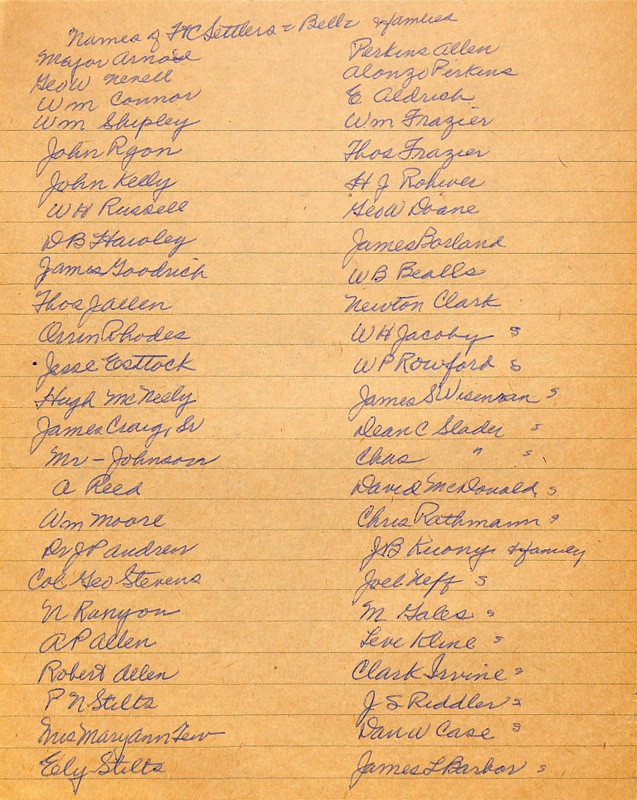 Names of Ft C Settlers = Belle & families
Major Arnold
Geo W Nevell
Wm Connor
Wm Shipley
John Ryon
John Kelly
W H Russell
D B Hawley
James Goodrich
Thos J Allen
Orrin Rhodes
Jesse Esttock
Hugh McNeely
James Craig, Sr
Mr - Johnson
A Reed
Wm Moore
Dr J P Andrew
Col Geo Stevens
N Runyon
A P Allen
Robert Allen
P N Stilts
Mrs Maryann Few
Eely Stilts
Perkins Allen
Alonzo Perkins
E Aldrich
Wm Frazier
Thos Frazier
H J Rohwer
Geo W Doane
James Borland
W B Bealls
Newton Clark
W H Jacoby s
W P Rowford s
James S Wisenman s
Dean C Slader s
Chas " s
David McDonald s
Chris Rathmann s
J B Kuony & family
Joel Neff s
M Gales s
Levi Kline s
Clark Irvine s
J S Riddler s
Dan W Case s
James L Barbor s